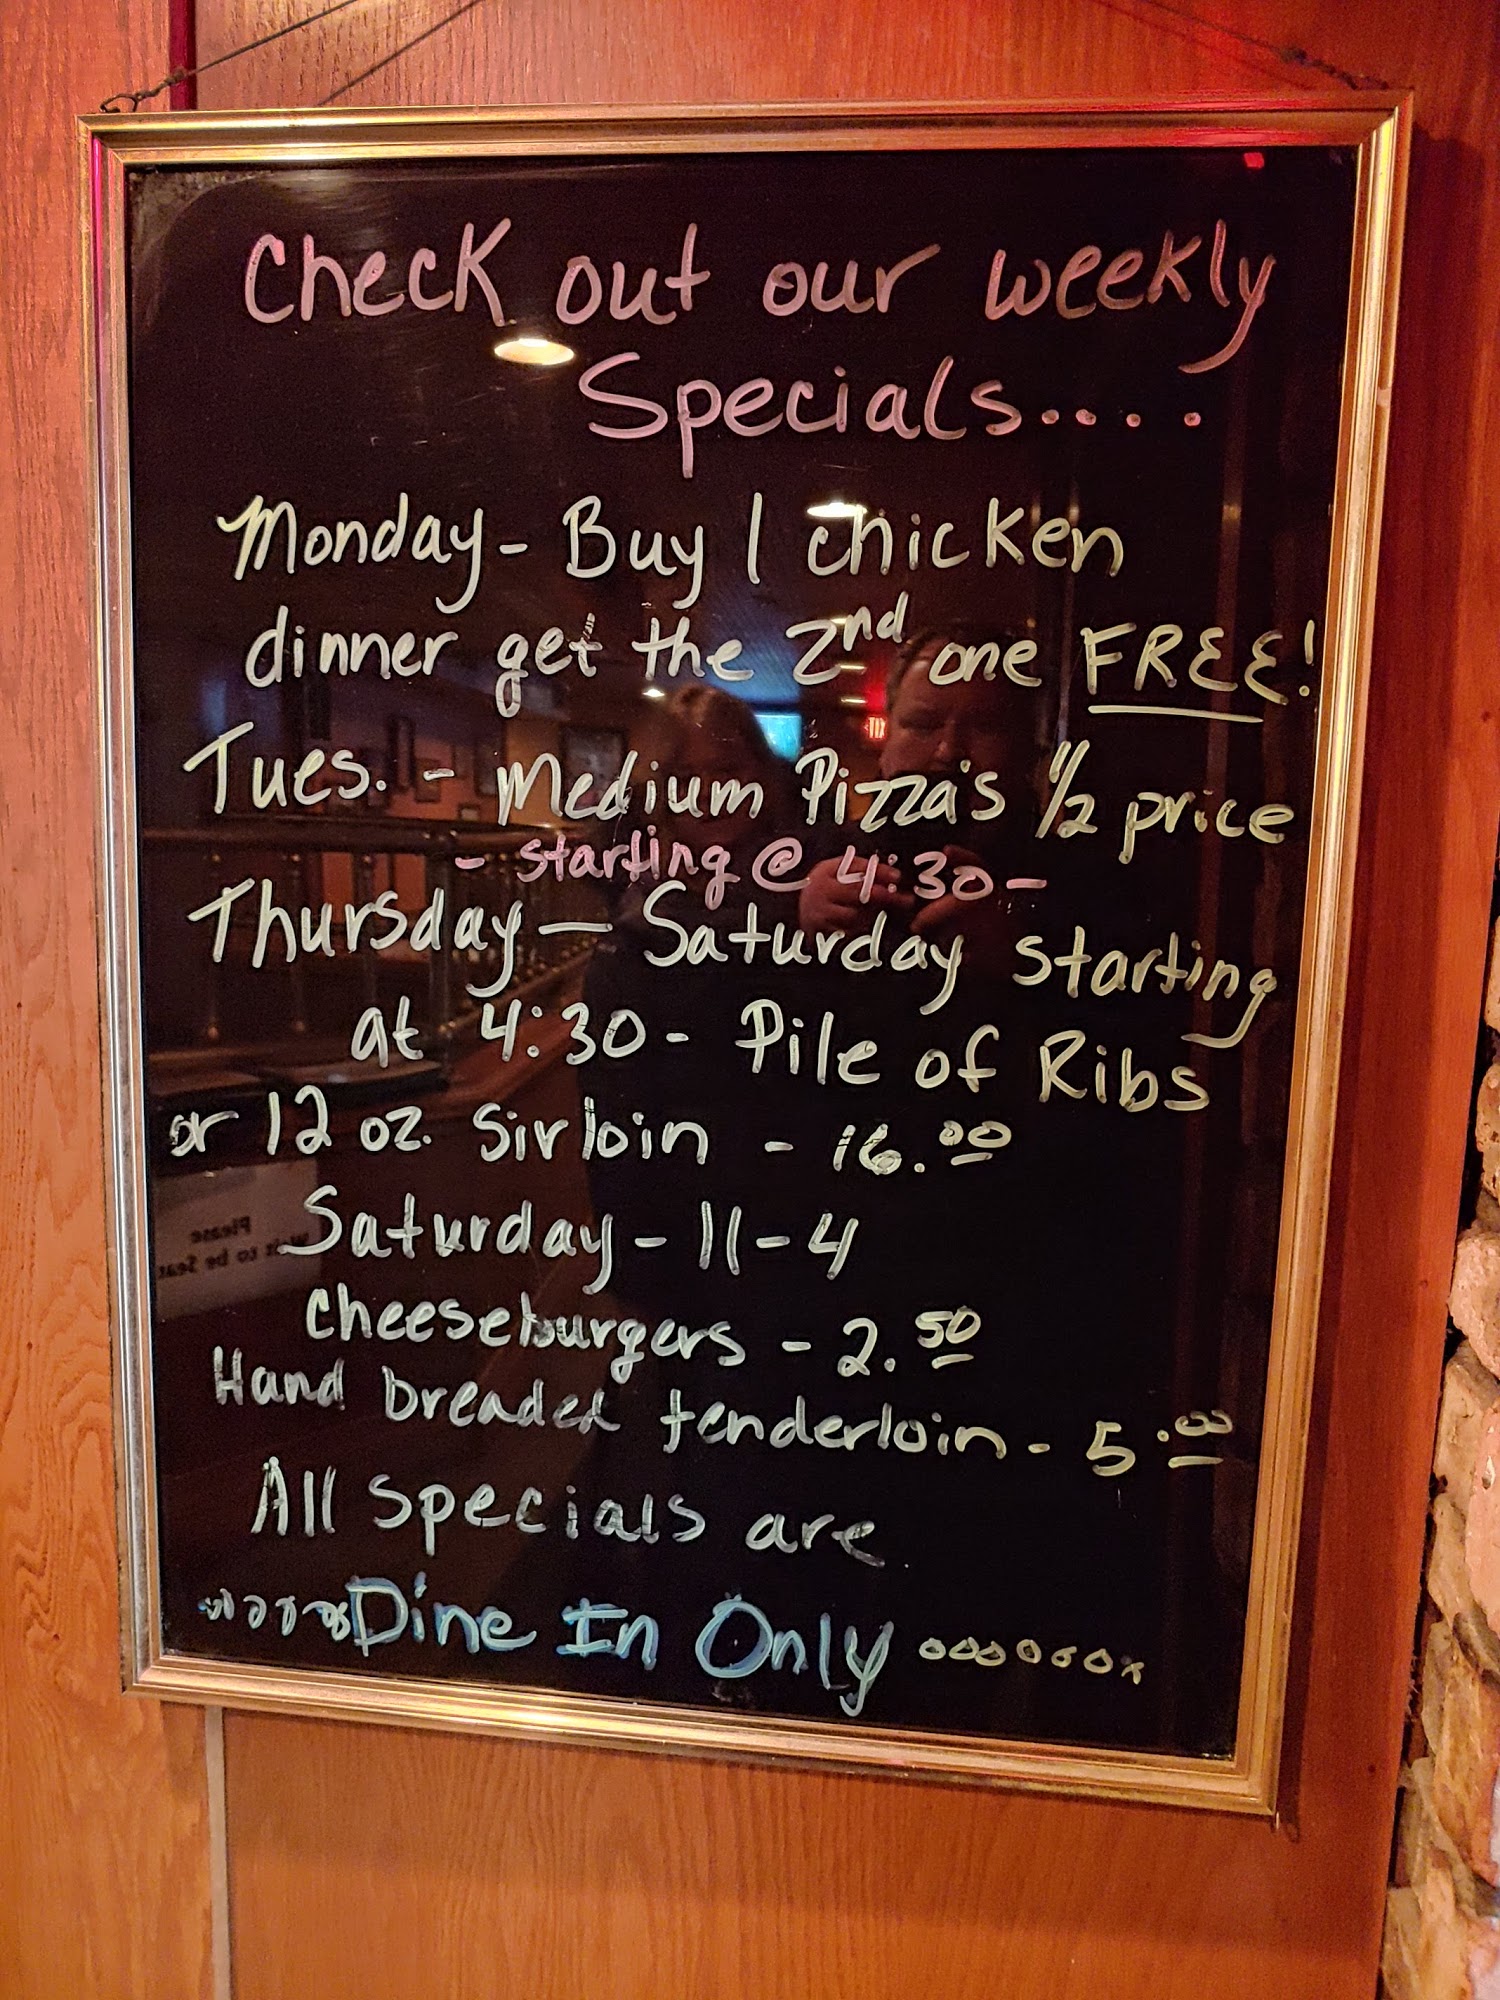 Check out our weekly
Specials....
Monday - Buy 1 chicken
dinner get the 2nd one FREE!
Tues. - Medium Pizza's 1/2 price
- starting @ 4:30 -
Thursday - Saturday starting
at 4:30 - Pile of Ribs
or 12 oz. Sirloin - 16.00
Saturday - 11-4
Cheeseburgers - 2.50
Hand breaded tenderloin - 5.00
All specials are
Dine In Only
Please
Wait to be Seat